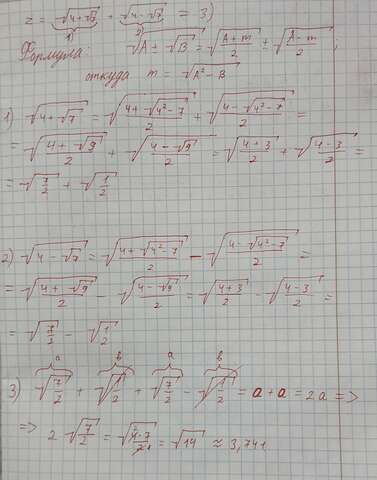 z = √(4+√7) + √(4-√7) = 3)
1) 2)
Формула: √(A ± √B) = √((A+m)/2) ± √((A-m)/2) ;
откуда m = √(A²-B)
1) √(4+√7) = √((4+√(4²-7))/2) + √((4-√(4²-7))/2) =
= √((4+√9)/2) + √((4-√9)/2) = √((4+3)/2) + √((4-3)/2) =
= √(7/2) + √(1/2)
2) √(4-√7) = √((4+√(4²-7))/2) - √((4-√(4²-7))/2) =
= √((4+√9)/2) - √((4-√9)/2) = √((4+3)/2) - √((4-3)/2) =
= √(7/2) - √(1/2)
a b a b
3) √(7/2) + √(1/2) + √(7/2) - √(1/2) = a + a = 2a =>
=> 2√(7/2) = √(4·7/2) = √14 ≈ 3,741